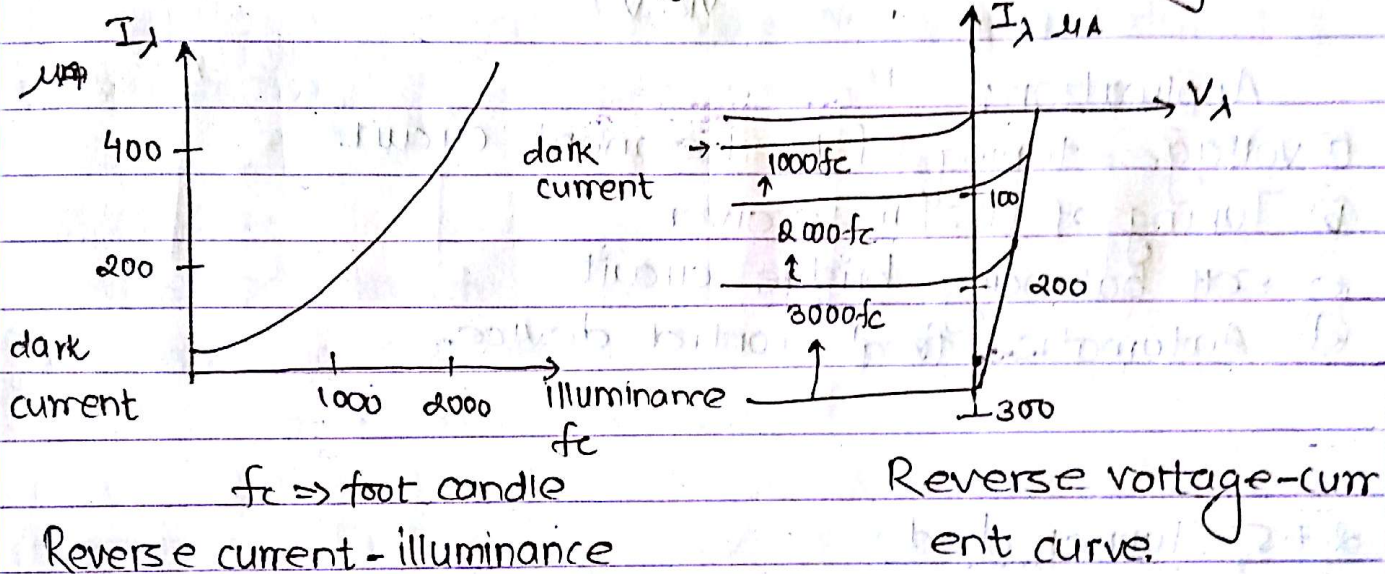 Iλ
μA
400
200
dark
current
1000 2000 illuminance
fc
fc => foot candle
Reverse current - illuminance
Iλ μA
Vλ
dark
current
1000fc
100
2000fc
200
3000fc
300
Reverse vortage-curr
ent curve.